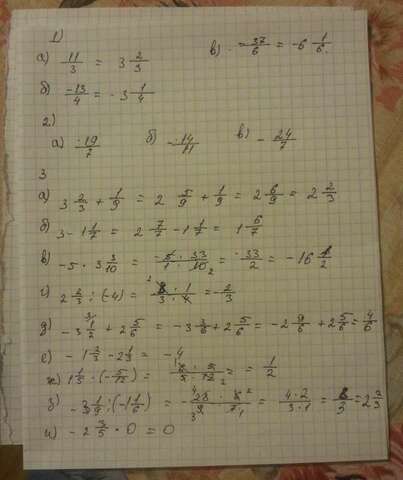 1)
а) 11/3 = 3 2/3 в) -37/6 = -6 1/6.
б) -13/4 = -3 1/4
2)
а) -19/7 б) -14/11 в) -24/7
3
а) 3 2/3 + 1/9 = 2 5/9 + 1/9 = 2 6/9 = 2 2/3
б) 3 - 1 1/7 = 2 7/7 - 1 1/7 = 1 6/7
в) -5 · 3 3/10 = -5 · 33 / 1 · 10 2 = -33/2 = -16 1/2
г) 2 2/3 : (-4) = 2 8 · 1 / 3 · 4 = -2/3
д) -3 1/2 + 2 5/6 = -3 3/6 + 2 5/6 = -2 9/6 + 2 5/6 = 4/6
е) -1 2/3 - 2 1/3 = -4
ж) 1 1/5 · (-5/12) = 6 · 5 / 5 · 12 2 = 1/2
з) -3 1/9 : (-1 1/6) = - 4 28 · 6 2 / 3 9 · 7 1 = 4·2 / 3·1 = 8/3 = 2 2/3
и) -2 3/5 · 0 = 0